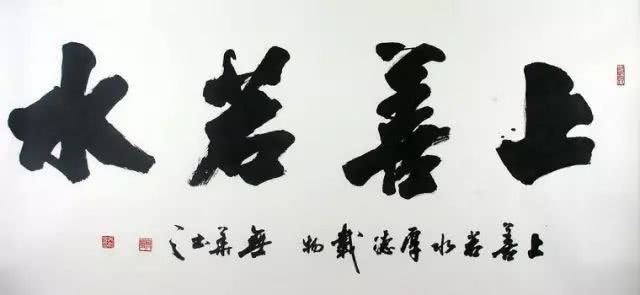 上善若水
上善若水厚德載物 無華書